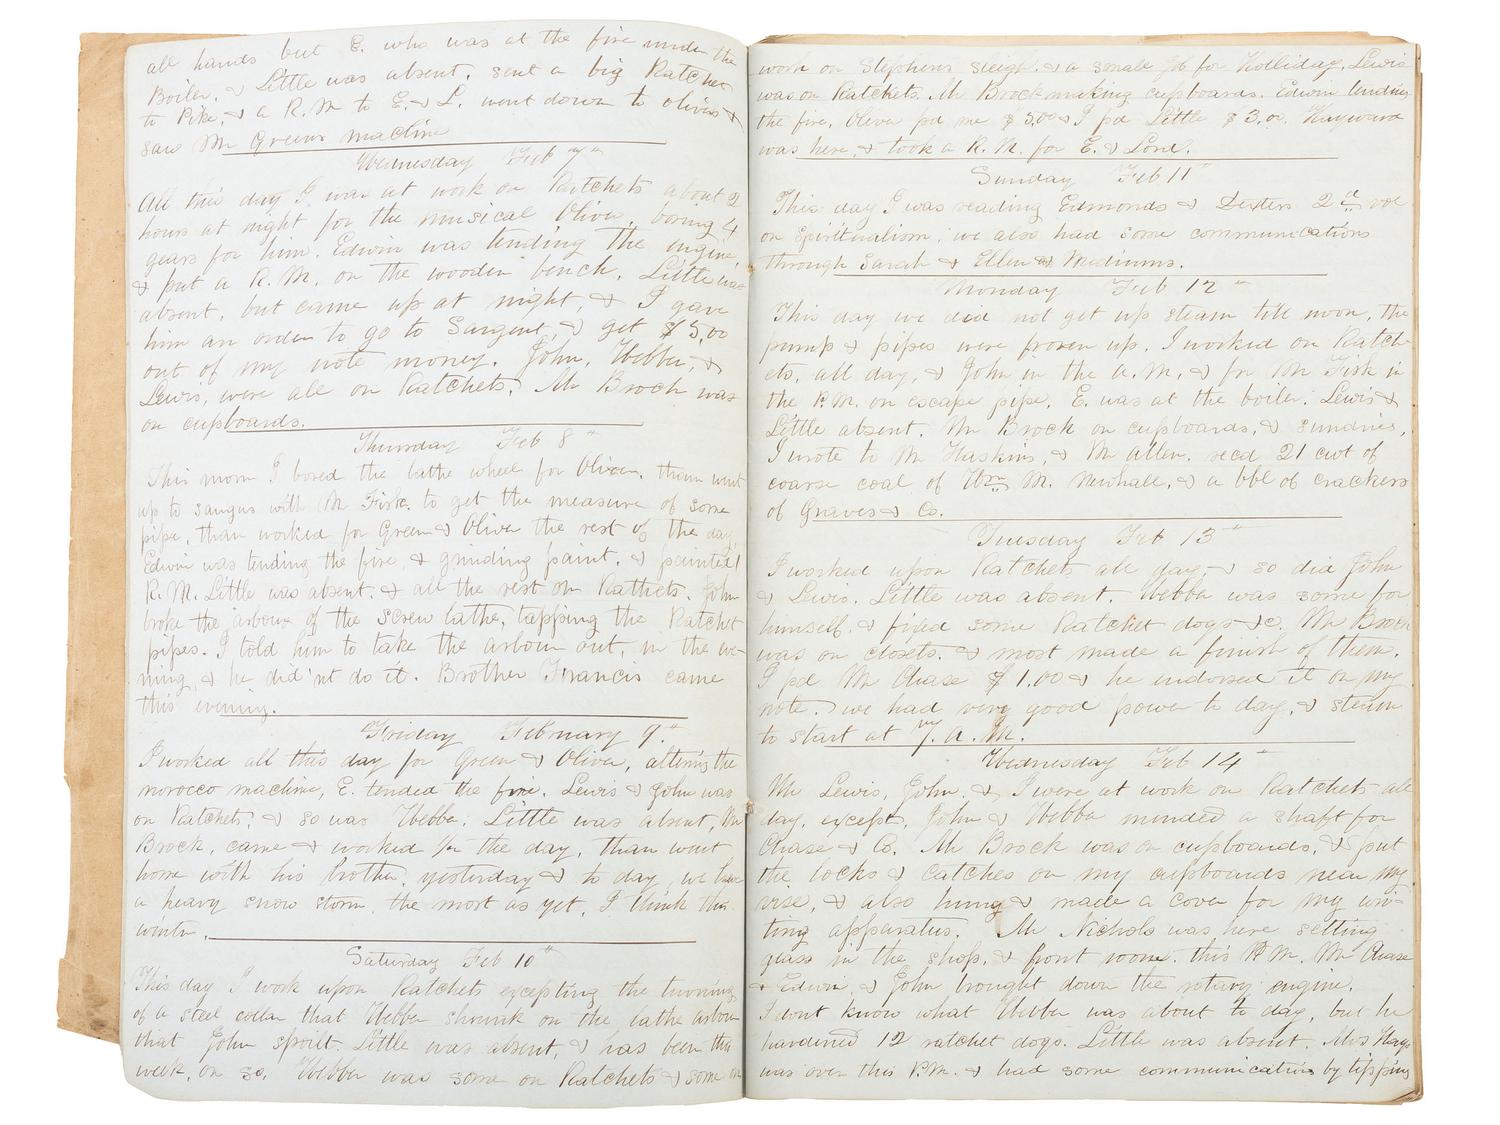 all hands but E. who was at the fire under the
Boiler, & Little was absent, sent a big Ratchet
to Pike, & a R. M to E. & L. went down to olivers &
saw Mr Greens machine
Wednesday Feb 7th
All this day I was at work on Ratchets about 2
hours at night for the musical Oliver, boring 4
gears for him. Edwin was tending the engine,
& put a R. M. on the wooden bench. Little was
absent, but came up at night, & I gave
him an order to go to Sargent & get $5,00
out of my note money. John, Webber, &
Lewis, were all on Ratchets. Mr Brock was
on cupboards.
Thursday Feb 8th
This morn I bored the lathe wheel for Oliver, than went
up to saugus with Mr Fisk. to get the measure of some
pipe, than worked for Green & Oliver the rest of the day,
Edwin was tending the fire, & grinding paint, & painted
R. M. Little was absent. & all the rest on Rathcts. John
broke the arbour of the screw lathe, tapping the Ratchet
pipes. I told him to take the arbour out, in the eve-
ning, & he did'nt do it. Brother Francis came
this evening.
Friday February 9th
I worked all this day for Green & Oliver, altering the
morocco machine, E. tended the fire. Lewis & John was
on Ratchets, & so was Webber. Little was absent, Mr
Brock, came & worked for the day, than went
home with his brother, yesterday & to day, we have
a heavy snow storm, the most as yet, I think this
winter.
Saturday Feb 10th
This day I work upon Ratchets excepting the turning
of a steel collar that Webber shrunk on the lathe arbour
that John spoilt. Little was absent, & has been this
week, or so. Webber was some on Ratchets & some on
work on Stephens sleigh, & a small job for Holliday, Lewis
was on Ratchets. Mr Brock making cupboards. Edwin tending
the fire, Oliver pd me $5,00 & I pd Little $3,00. Hayward
was here, & took a R. M. for E. & Lord.
Sunday Feb 11th
This day I was reading Edmonds & Dexters 2d vol
on Spiritualism, we also had some communications
through Sarah & Ellen as Mediums.
Monday Feb 12th
This day we did not get up steam till noon, the
pump & pipes were frozen up. I worked on Ratch-
ets, all day, & John in the A. M, & for Mr Fisk in
the P. M. on escape pipe. E. was at the boiler. Lewis &
Little absent. Mr Brock on cupboards, & sundries,
I wrote to Mr Haskins, & Mr Allen. recd 21 cwt of
coarse coal of Wm M. Newhall, & a bbl of crackers
of Graves & Co.
Tuesday Feb 13th
I worked upon Ratchets all day, & so did John
& Lewis. Little was absent. Webber was some for
himself. & fixed some Ratchet dogs &c. Mr Brock
was on closets. & most made a finish of them.
I pd Mr Chase $1.00 & he endorsed it on my
note. we had very good power to day, & steam
to start at 7. A. M.
Wednesday Feb 14th
Mr Lewis, John, & I were at work on Ratchets all
day, except, John & Webber mended a shaft for
Chase & Co. Mr Brock was on cupboards, & put
the locks & catches on my cupboards near my
vise, & also hung & made a cover for my wri-
ting apparatus. Mr Nichols was here setting
glass in the shop, & front room. this P. M. Mr Chase
& Edwin, & John brought down the rotary engine.
I dont know what Webber was about to day, but he
hardined 12 ratchet dogs. Little was absent. Mrs Hays
was over this P. M. & had some communications by tipping